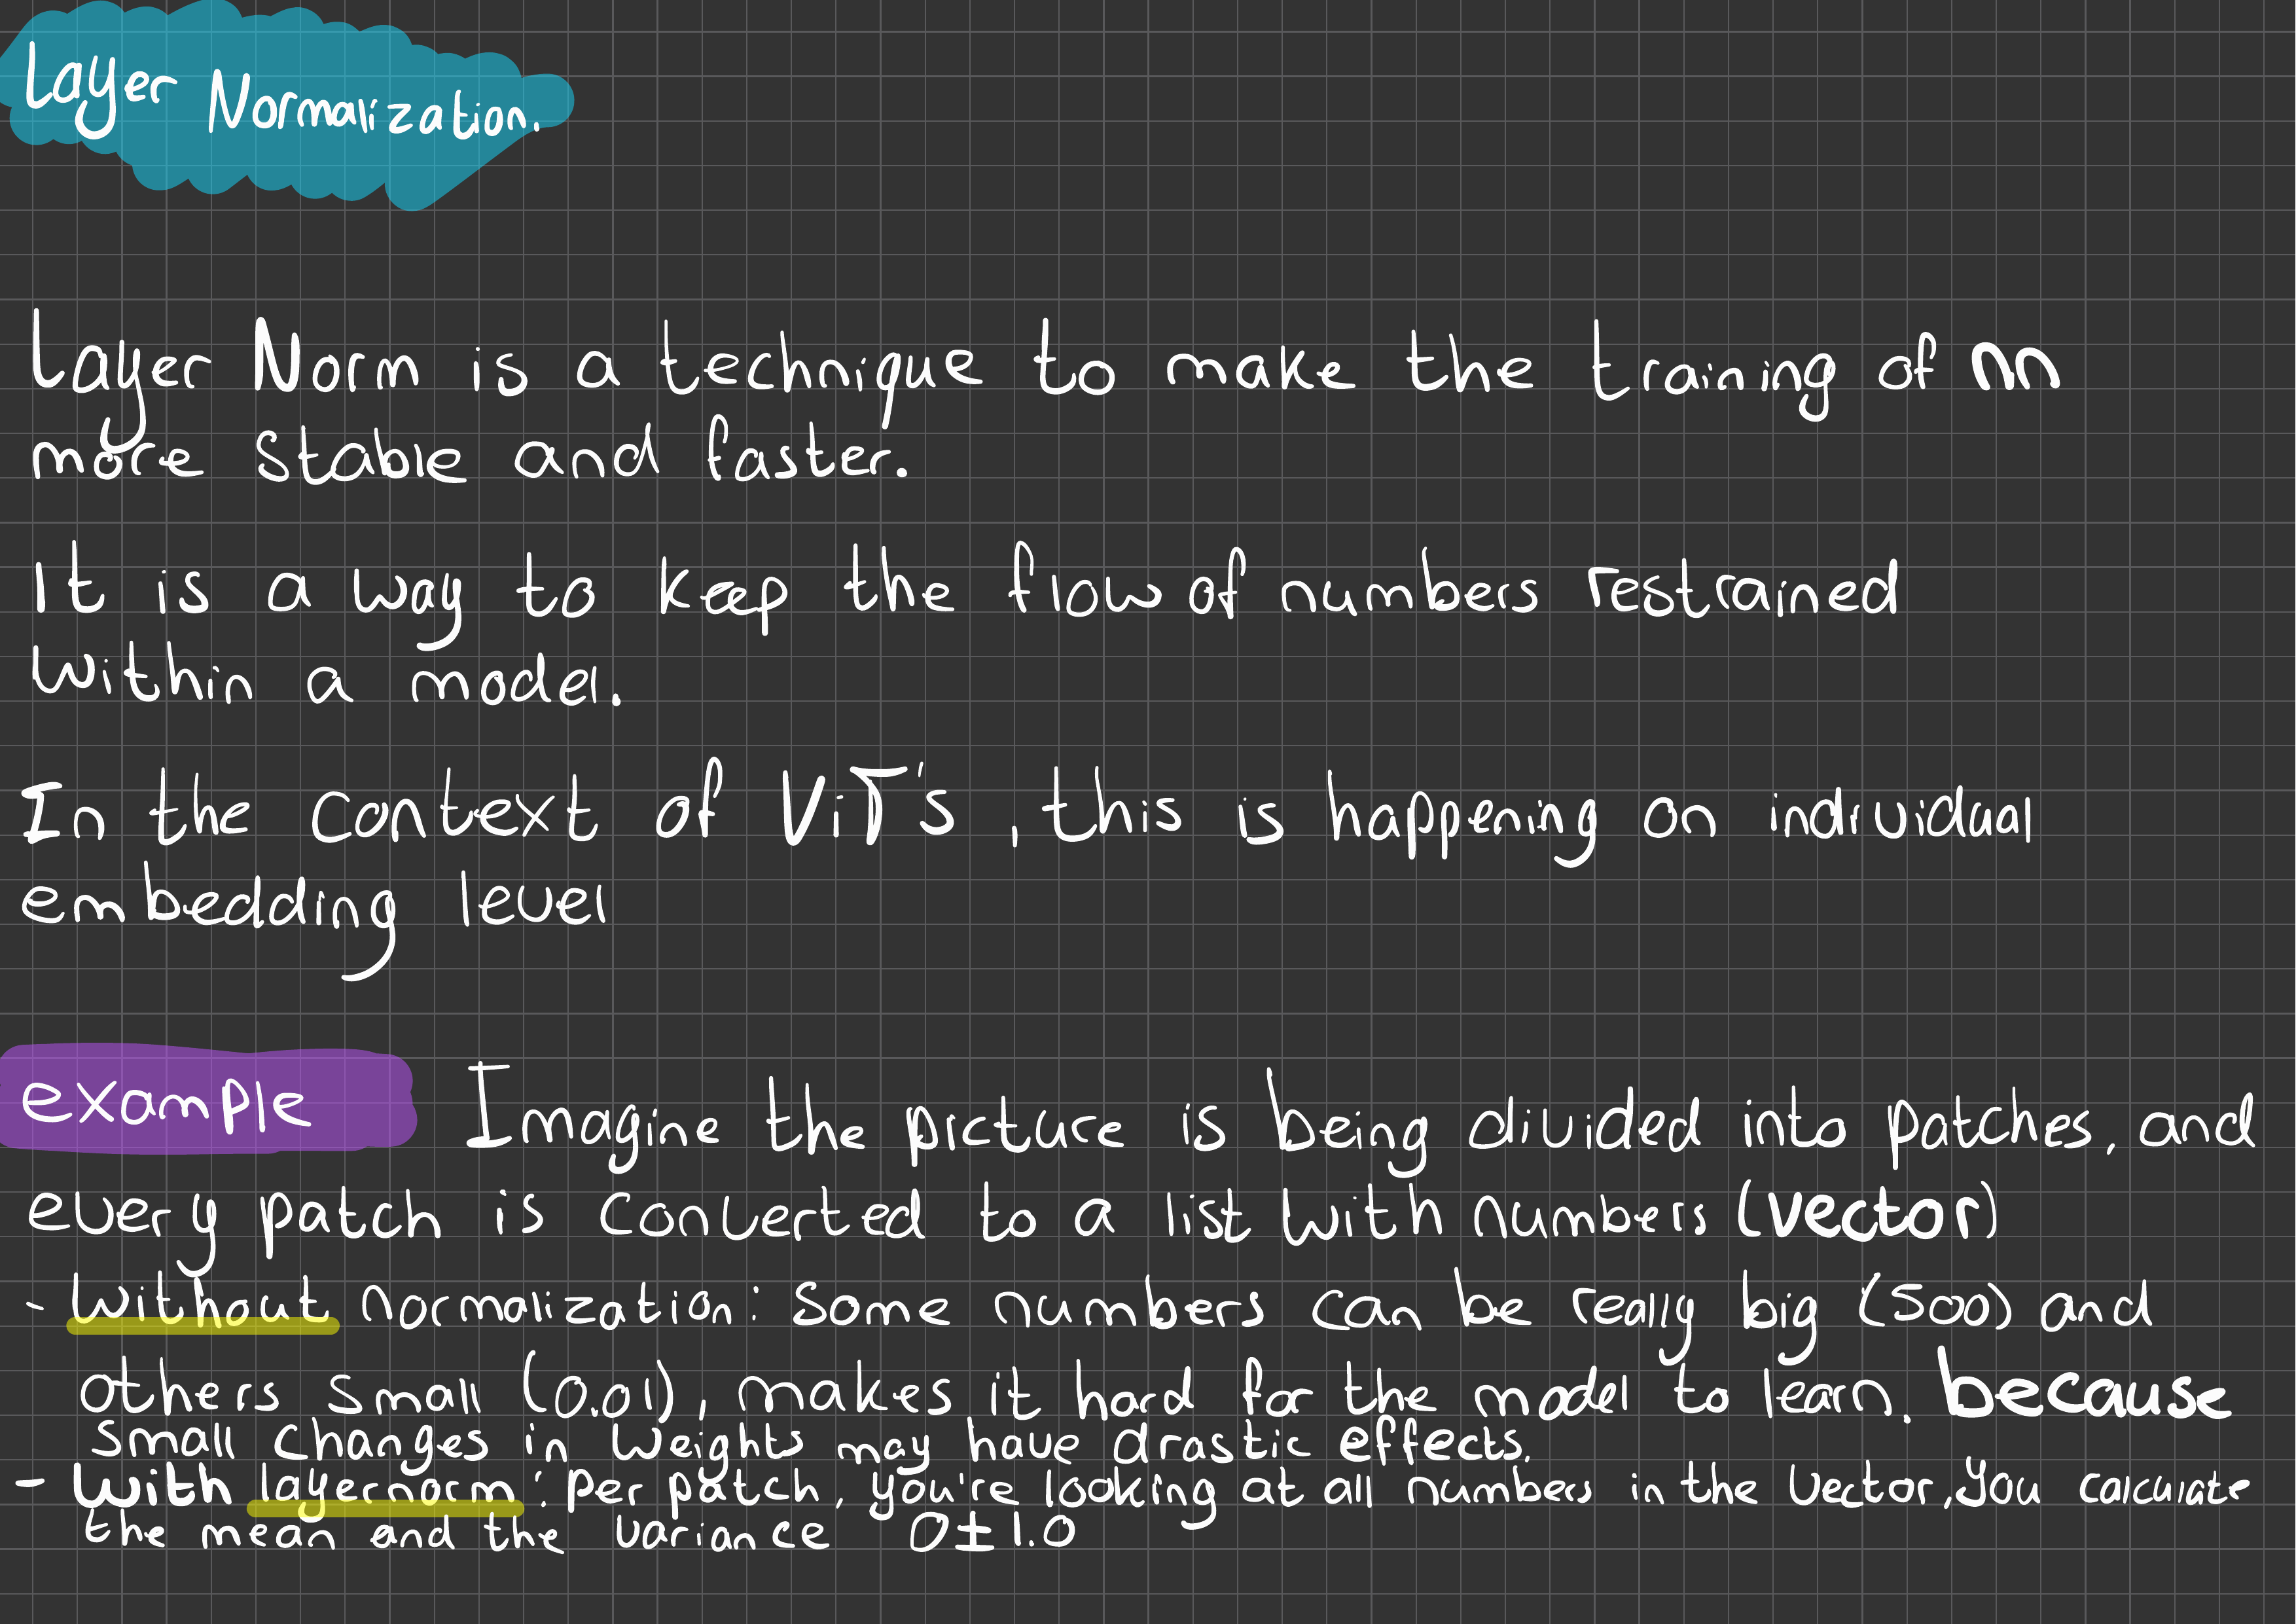 Layer Normalization.
Layer Norm is a technique to make the training of nn
more stable and faster.
It is a way to keep the flow of numbers restrained
within a model.
In the context of ViT's, this is happening on individual
embedding level
example Imagine the picture is being divided into patches, and
every patch is converted to a list with numbers (vector)
- Without normalization: Some numbers can be really big (500) and
others small (0.01), makes it hard for the model to learn. because
small changes in weights may have drastic effects.
- With layernorm: per patch, you're looking at all numbers in the vector. You calculate
the mean and the variance 0±1.0